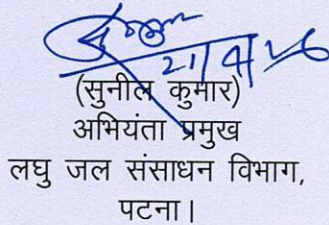 21/9/26
(सुनील कुमार)
अभियंता प्रमुख
लघु जल संसाधन विभाग,
पटना।